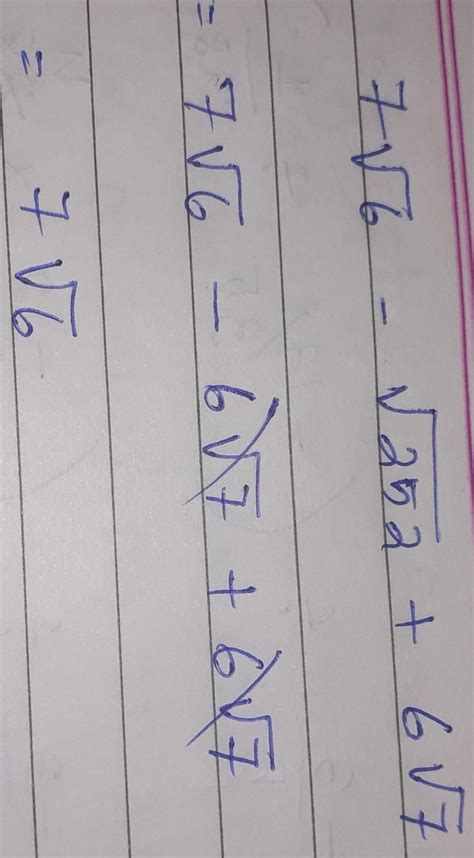 7√6 - √252 + 6√7
= 7√6 - 6√7 + 6√7
= 7√6